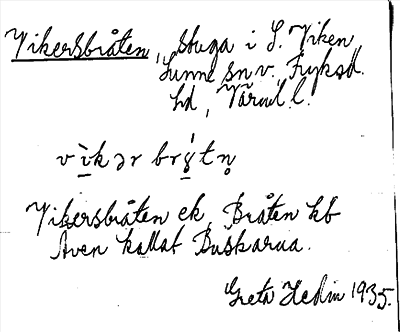 Vikersbråten, stuga i S. Viken
Sunne sn v., Fryksd.
hd, Värml. l.
vìkər brǫ́tn̥
Vikersbråten ek, Bråten kb
Även kallat Buskarna.
Greta Hedin 1935.